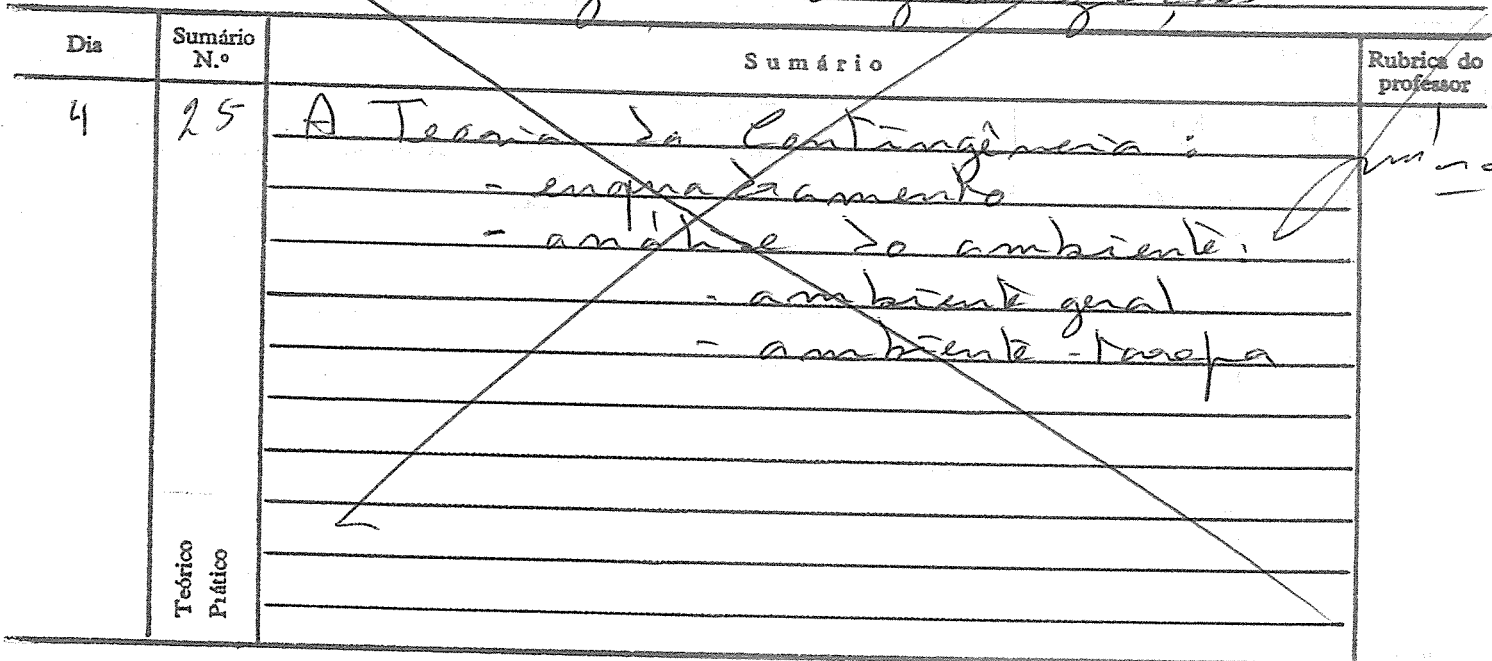 Dia
Sumário N.º
Sumário
Rubrica do professor
4
25
A Teoria da Contingência:
- enquadramento
- análise do ambiente:
- ambiente geral
- ambiente-tarefa
Teórico
Prático